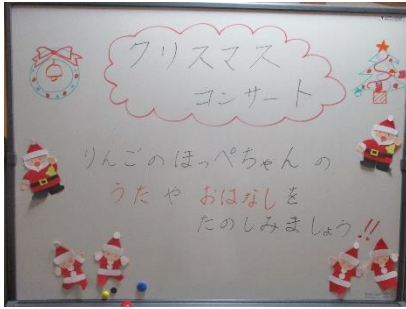 クリスマス
コンサート
りんごのほっぺちゃんの
うたや おはなしを
たのしみましょう!!